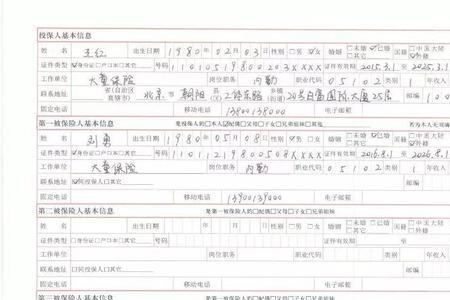 投保人基本信息
姓 名 王红 出生日期 1980年02月03日 性别 □男 ☑女 婚姻 □未婚 ☑已婚 □其它 国籍 ☑中国大陆 □外籍
证件类型 ☑身份证□户口本□其它 号码 11010519800203XXXX 证件有效期 2015.3.1 至 2025.3.1
工作单位 大童保险 岗位职务 内勤 职业代码 05102 1 年收入
联系地址 省(自治区直辖市) 北京 市 朝阳 县 区 乡镇 街 20号 国际大厦25层 邮编 100
固定电话 移动电话 13800138000 电子邮箱
第一被保险人基本信息 是投保人的□本人☑配偶□父母□子女□兄弟姐妹□其他
姓 名 刘勇 出生日期 1980年05月08日 性别 ☑男 □女 婚姻 □未婚 ☑已婚 □其它 国籍 ☑中国大陆 □外籍
证件类型 ☑身份证□户口本□其它 号码 11011219800508XXXX 证件有效期 2016.8.1 至 2026.8.1
工作单位 大童保险 岗位职务 内勤 职业代码 05102 1 年收入
联系地址 ☑同投保人□其它 邮编
固定电话 移动电话 13900139000 电子邮箱
第二被保险人基本信息 是第一被保险人的□配偶□父母□子女□兄弟姐妹
姓 名 出生日期 年 月 日 性别 □男 □女 婚姻 □未婚 □已婚 □其它 国籍 □中国大陆 □外籍
证件类型 □身份证□户口本□其它 号码 证件有效期 至
工作单位 岗位职务 职业代码 年收入
联系地址 □同投保人□其它 邮编
固定电话 移动电话 电子邮箱
第三被保险人基本信息 是第一被保险人的□配偶□父母□子女□兄弟姐妹